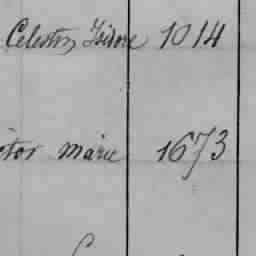 Celestin Isidore 1014
ctor marie 1673